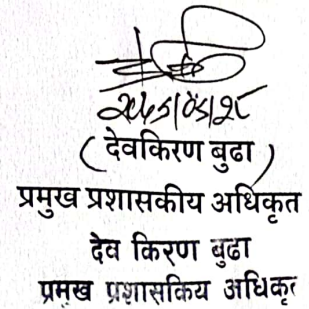 ( देवकिरण बुढा )
प्रमुख प्रशासकीय अधिकृत
देव किरण बुढा
प्रमुख प्रशासकिय अधिकृत